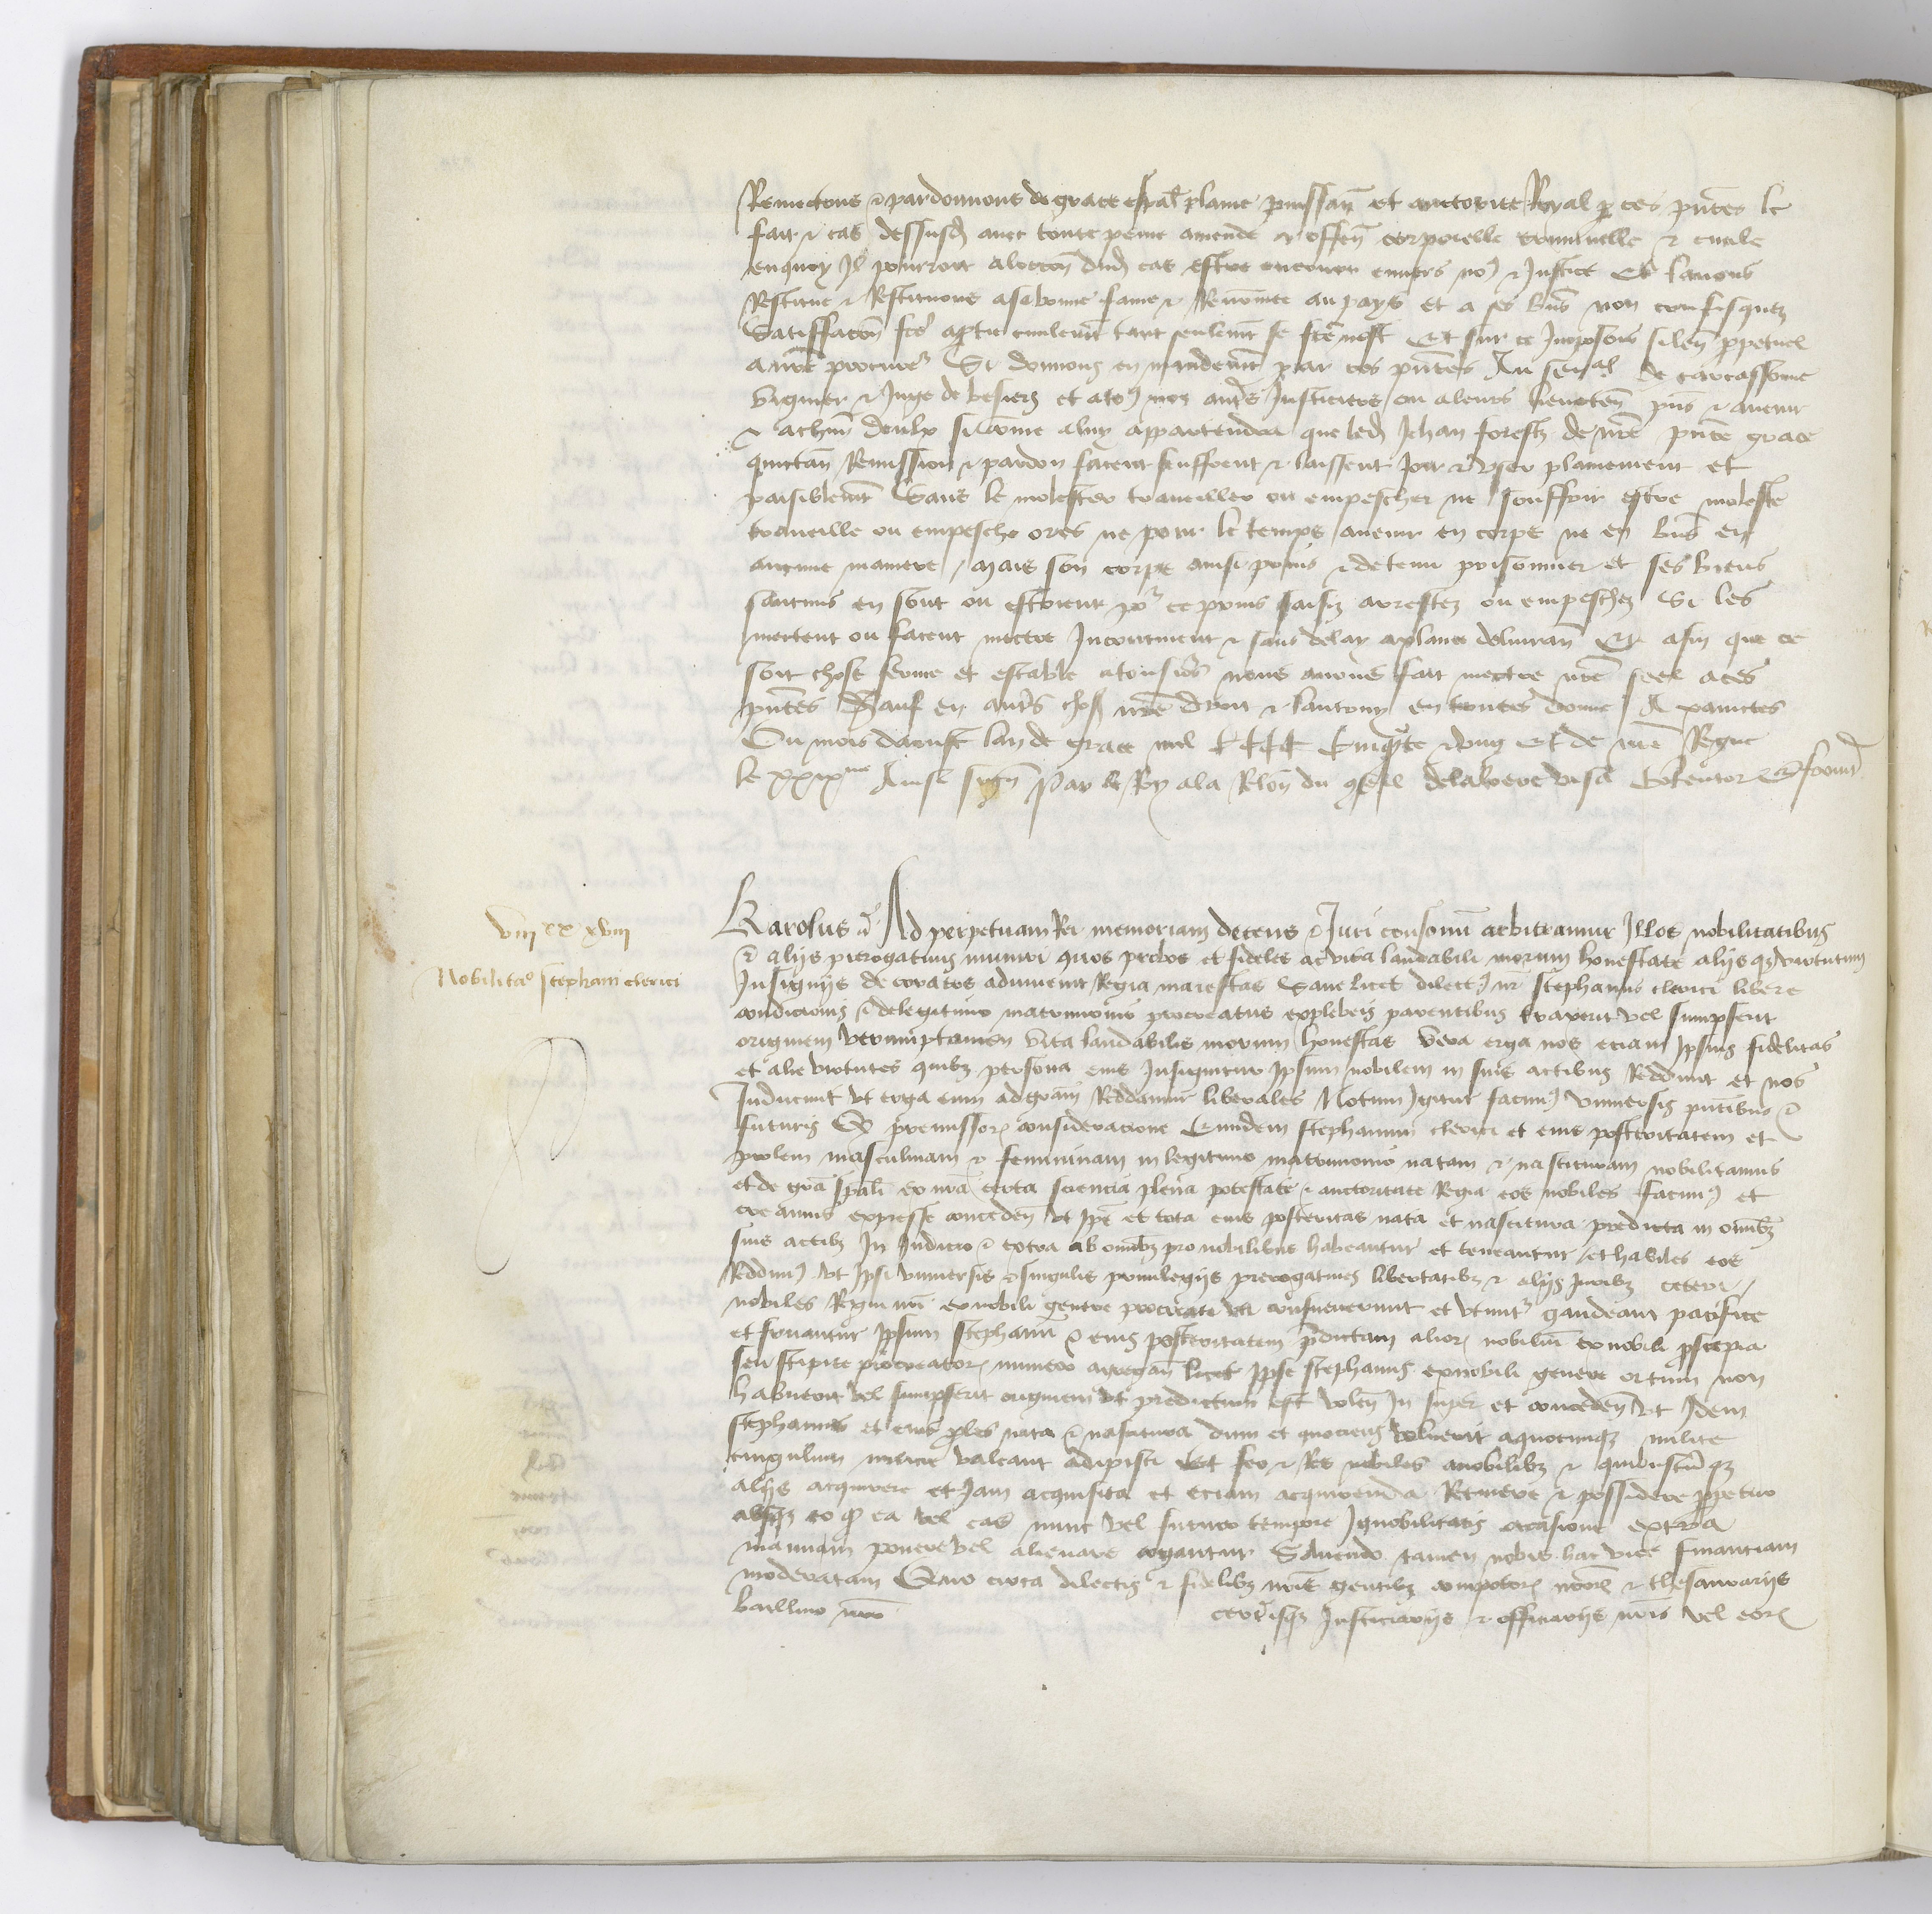 Remectons et pardonnons de grace espāl plaine puissan̄ et auctorite Royal p ces pn̄tes le
fait et cas dessusd auec toute peine amende et offen̄ corporelle criminelle et ciuile
enquoy Il pourroit aloccōn dud cas estre encouru enuers no9 et Justice Et lauons
Restitue et Restituons asabonne fame et Renōmee au pays et a ses bn̄s non confisquez
Satiffacōn fcē aptie ciuilemt tant seulemt se fcē nest Et sur ce Imposons silen̄ ppetuel
a nrē procur Si donnons en mandemt par ces pn̄tes Au senal de carcassonne
viguier et Juge de besiers et ato9 noz autrs Justiciers ou aleurs lieuten̄ pn̄s et auenir
et achūn deulx sicōme aluy appartendra que led Jehan forestz de nrē pn̄te grace
quictan̄ Remission et pardon facent seuffrent et laissent Joir et vser plainement et
paisiblemt Sans le molester trauailler ou empescher ne souffrir estre moleste
trauaille ou empesche ores ne pour le temps auenir en corps ne en bn̄s en
aucune maniere / Mais son corps ainsi prins et detenu prisonnier et ses biens
saucuns en sont ou estoient po ce prins saisiz arrestez ou empeschez Si les
mectent ou facent mectre Incontinent et sans delay aplaine deliuran̄ Et afin que ce
soit chose ferme et estable atousiōs nous auons fait mectre nrē seel aces
pn̄tes Sauf en autrs chos nrē droit et lautruy en toutes Donne A
Ou mois daoust lan de grace mil CCCC Cinqte et ung Et de nrē Regne
le xxixme Ainsi sign̄ Par le Roy ala Relōn du cōseil delaloere visa Contentor
viii xx xviii
Nobilitaō stephani clerici
Karolus et Ad perpetuam Rei memoriam decens et Juri consonū arbitramur Illos nobilitatibus
et alijs prerogatiuis muniri quos probos et fideles ac vita laudabili morum honestate alijsqz virtutum
Insignijs decoratos adinuenit Regia maiestas Sane licet dilect9 nr̄ stephanus clerici libere
condicionis et delegitimo matrimonio procreatus explebeis parentibus traxerit vel sumpserit
originem verumptamen vita laudabilis morum honestas vera erga nos eciam Ipsius fidelitas
et alie virtutes quibz persona eius Insignitur Ipsum nobilem in suis actibus Reddunt et nos
Inducunt vt erga eum adgrām Reddamur liberales Notum Igitur facim9 vniuersis pn̄tibus et
futuris Q premissor consideracione Eundem stephanum clerici et eius posteritatem et
prolem masculinam et femininam in legitimo matrimonio natam et nascituram nobilitamus
et de grā spāli ex nrā certa sciencia plena potestate et auctoritate Regia eos nobiles facim9 et
creamus expresse conceden̄ vt Ipē et tota eius posteritas nata et nascitura predicta in omībz
suis actibz In Judicio et extra ab omībz pro nobilibus habeantur et teneantur / et habiles eos
Reddim9 vt Ipsi vniuersis et singulis priuilegijs prerogatiuis libertatibz et alijs Juribz ceteri /
nobiles Regni nr̄i ex nobili genere procreati vti consueuerunt et vtunt gaudeant pacifice
et fruantur Ipsum stephanū et eius posteritatem pdictam alior nobiliū ex nobili pscapia
seu stipite procreator numero aggregan̄ licet Ipse stephanus exnobili genere ortum non
habuerit vel sumpserit originem vt predictum est volen̄ In super et conceden̄ vt Idem
stephanus et eius ples nata et nascitura dum et quociens voluerit aquocunqz milite
cingulum milicie valeant adipisci vet feo et Res nobiles anobilibz et quibuscūqz
alijs acquirere et Jam acquisita et eciam acquirenda Retinere et possidere ppetuo
absqz eo q ea vel eas nunc vel futuro tempore Ignobilitatis occasione extra
manum ponere vel alienare cogantur Soluendo tamen nobis hac vice financiam
moderatam Quo circa dilectis et fidelibz nr̄is gentibz compotor nr̄or et thesaurarijs
baillino nr̄o ceterisqz Justiciarijs et officiarijs nr̄is vel eor